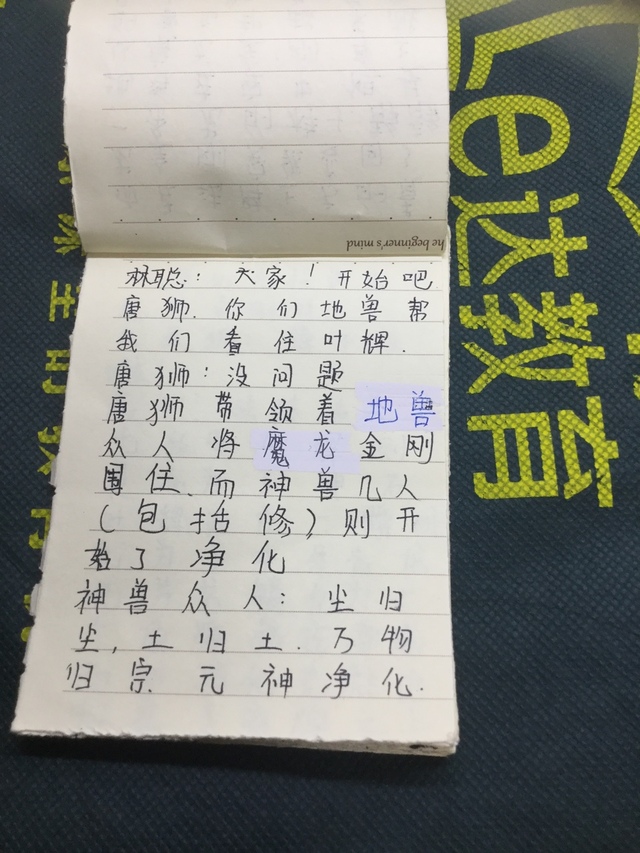 林聪：大家！开始吧
唐狮．你们地兽帮
我们看住叶辉．
唐狮：没问题
唐狮带领着地兽
众人将魔龙金刚
围住．而神兽几人
（包括修）则开
始了净化
神兽众人：尘归
尘，土归土．万物
归宗元神净化．
he beginner's mind
Le达教育